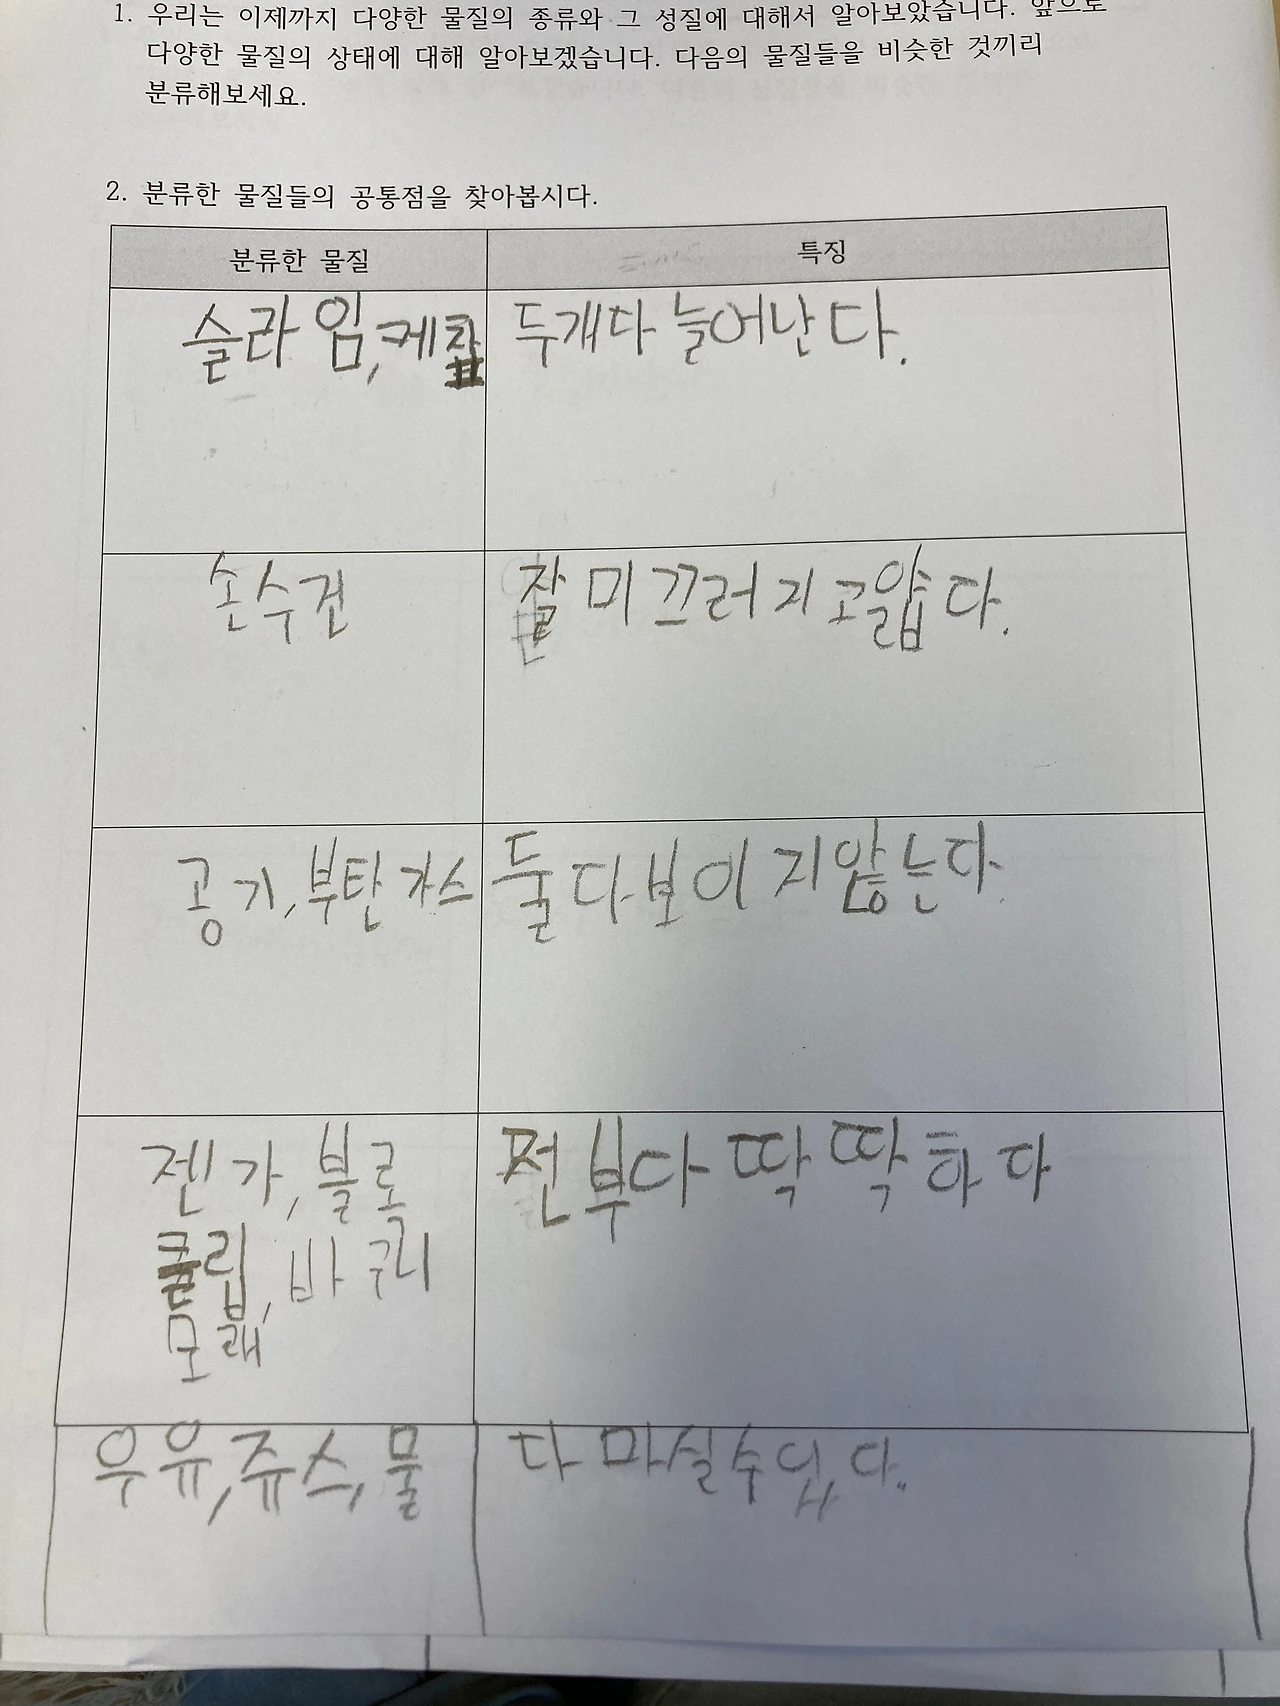 1. 우리는 이제까지 다양한 물질의 종류와 그 성질에 대해서 알아보았습니다. 앞으로
다양한 물질의 상태에 대해 알아보겠습니다. 다음의 물질들을 비슷한 것끼리
분류해보세요.
2. 분류한 물질들의 공통점을 찾아봅시다.
분류한 물질 특징
슬라임,케찹 두개다 늘어난다.
손수건 잘 미끄러지고얇다.
공기,부탄가스 둘다보이지않는다.
젠가,블록 전부다 딱딱하다
클립,바퀴
모래
우유,쥬스,물 다 마실수있다.